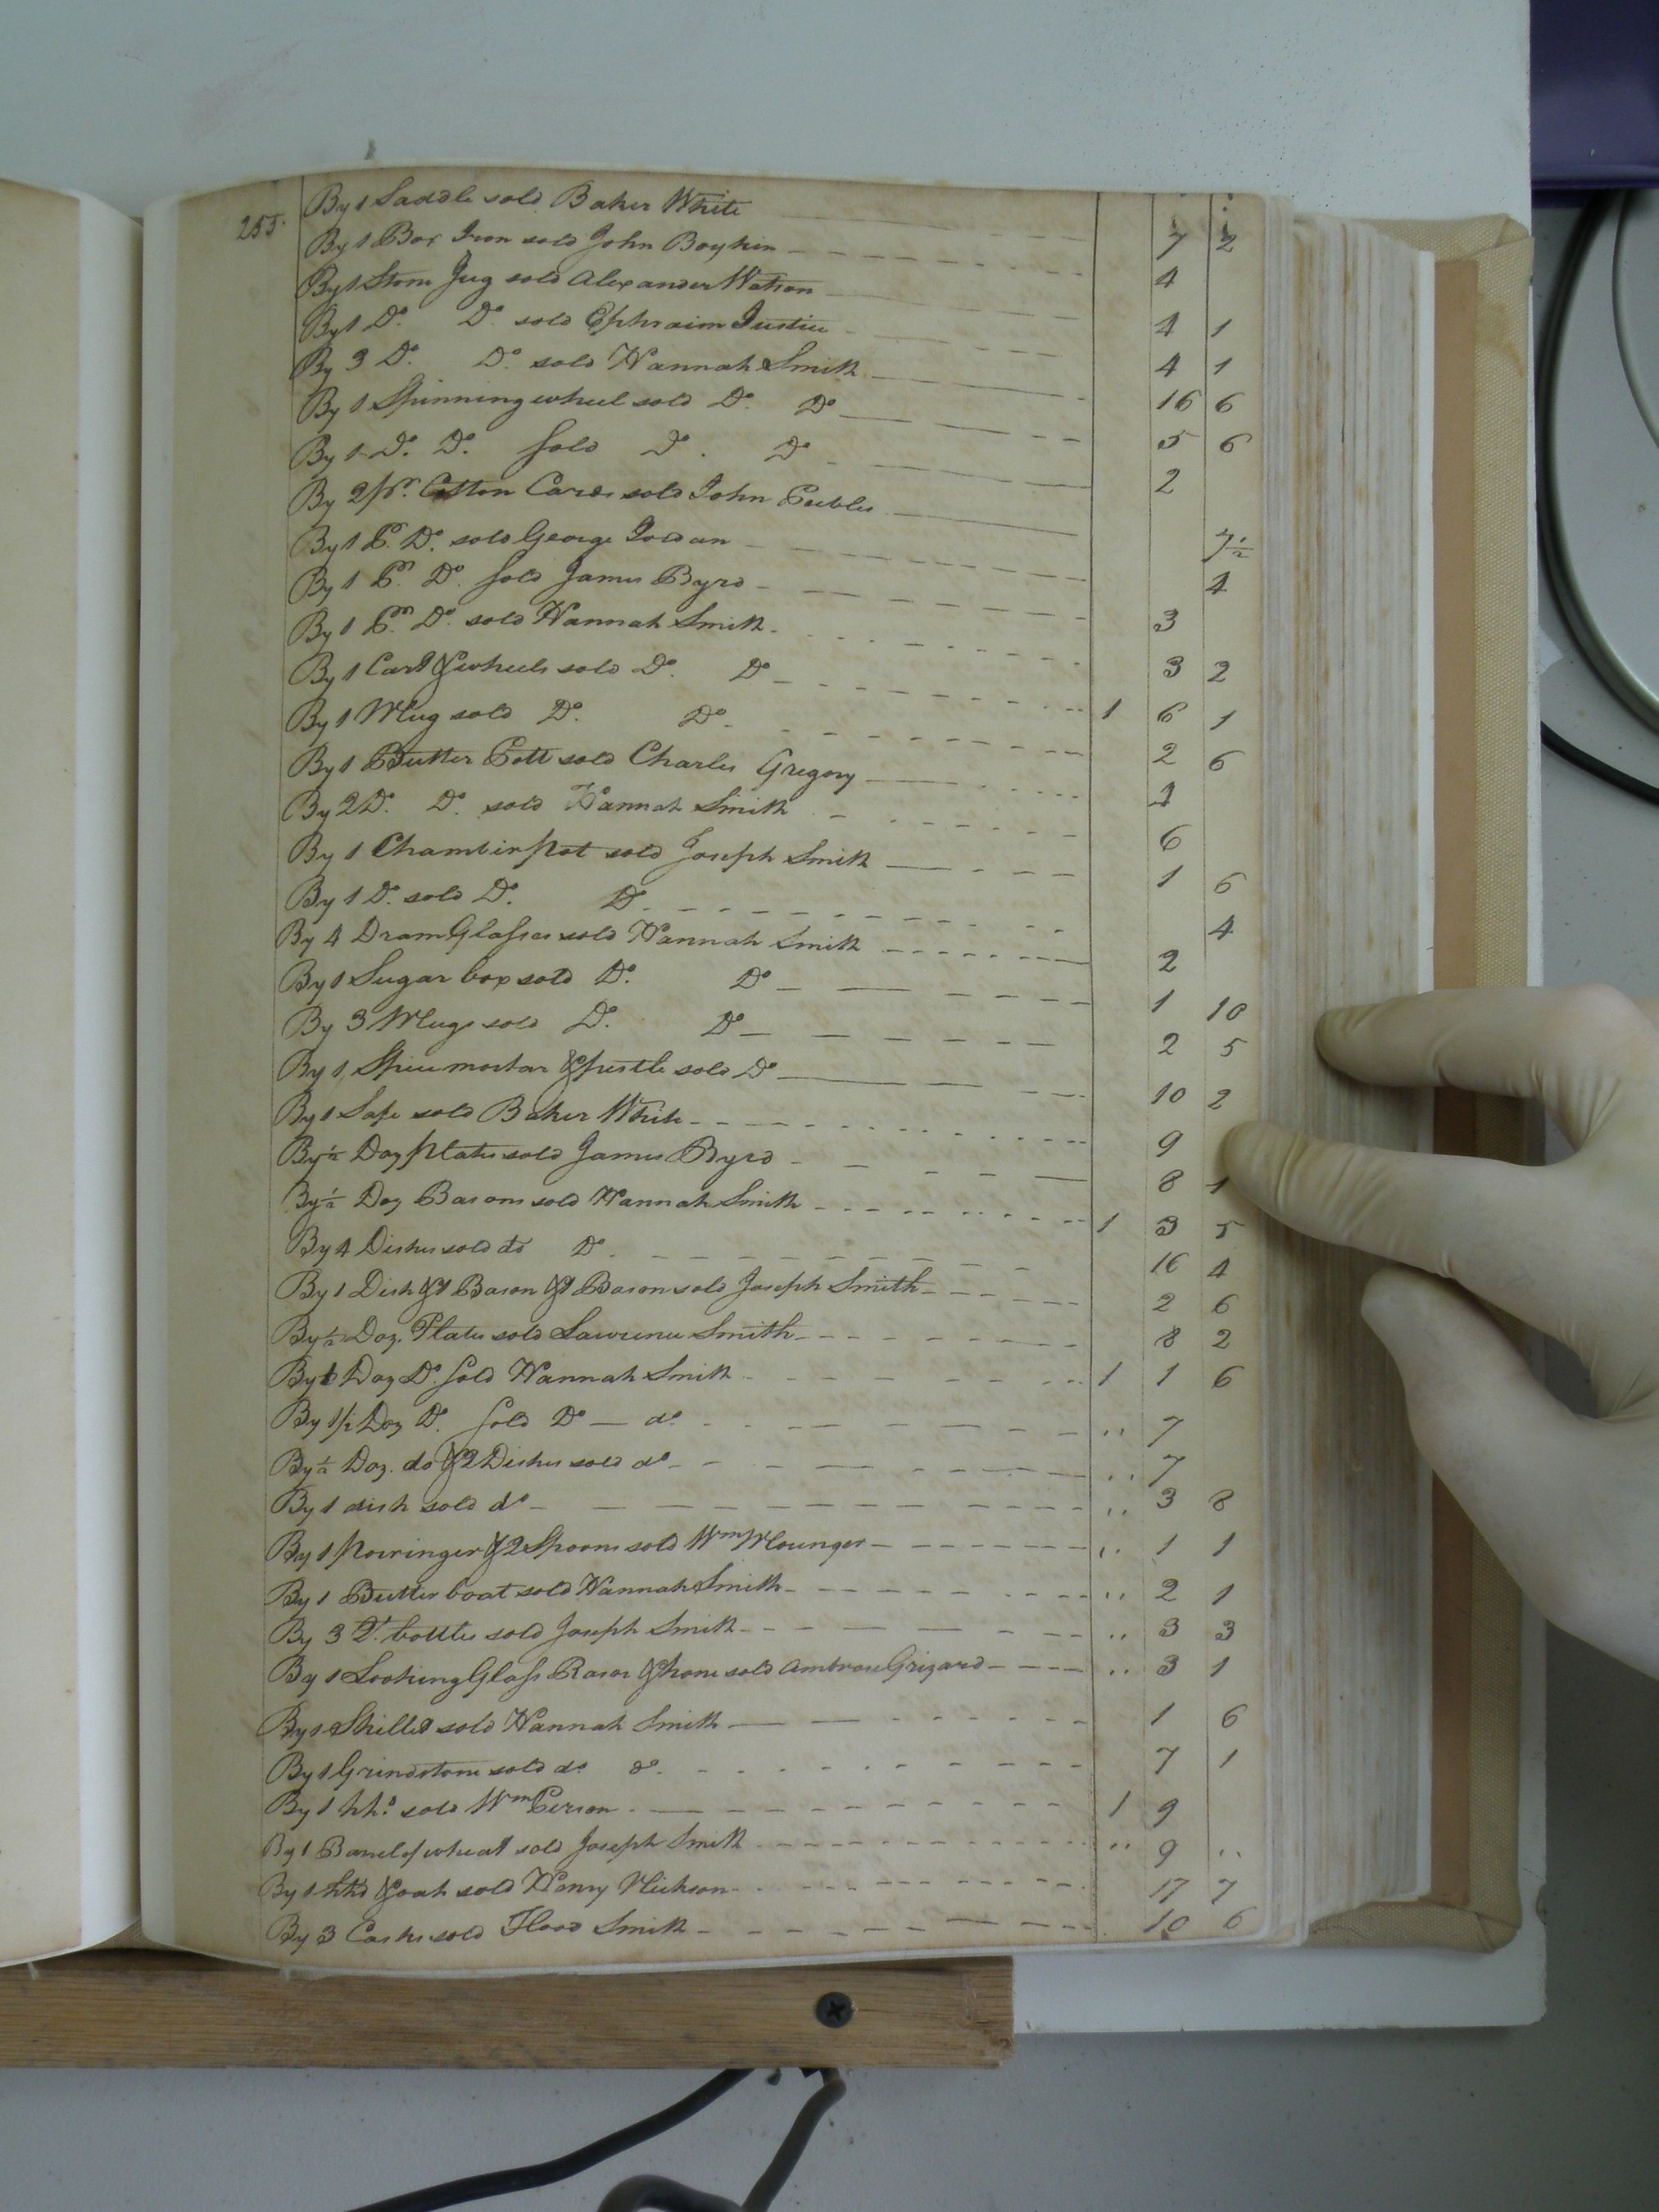 255.
By 1 Saddle sold Baker White 7 2
By 1 Box Iron sold John Boykin 4
By 1 Stone Jug sold Alexander Watson 4 1
By 1 Do. Do. sold Ephraim Justice 4 1
By 3 Do. Do. sold Hannah Smith 16 6
By 1 Spinning wheel sold Do. Do 5 6
By 1 Do. Do. sold Do. Do 2
By 2 pr. Cotton Cards sold John Peebles 7½
By 1 P. Do. sold George Jordan 4
By 1 Pr. Do. sold James Byrd 3
By 1 Pr. Do. sold Hannah Smith 3 2
By 1 Cart & wheels sold Do. Do 1 6 1
By 1 Mug sold Do. Do. 2 6
By 1 Butter Pott sold Charles Gregory 1
By 2 Do. Do. sold Hannah Smith 6
By 1 Chamber pot sold Joseph Smith 1 6
By 1 Do. sold Do. Do 4
By 4 Dram Glasses sold Hannah Smith 2
By 1 Sugar box sold Do. Do 1 10
By 3 Mugs sold Do. Do 2 5
By 1 Spice mortar & pestle sold Do 10 2
By 1 Safe sold Baker White 9
By ½ Doz plates sold James Byrd 8 1
By ½ Doz Basons sold Hannah Smith 1 3 5
By 4 Dishes sold do Do. 16 4
By 1 Dish & 1 Bason & 1 Bason sold Joseph Smith 2 6
By ½ Doz. Plates sold Lawrence Smith 8 2
By 1 Doz Do. sold Hannah Smith 1 1 6
By 1/2 Doz Do. sold Do — do. " 7
By ½ Doz. do & 2 Dishes sold do " 7
By 1 dish sold do " 3 8
By 1 porringer & 2 Spoons sold Wm Mounger " 1 1
By 1 Butter boat sold Hannah Smith " 2 1
By 3 Qt. bottles sold Joseph Smith " 3 3
By 1 Looking Glass Rasor & hone sold Ambrose Grizard " 3 1
By 1 Skillet sold Hannah Smith 1 6
By 1 Grindstone sold do do. 7 1
By 1 hhd sold Wm Person 1 9
By 1 Barrel of wheat sold Joseph Smith " 9 "
By 1 hhd & oats sold Henry Hickson 17 7
By 3 Casks sold Flood Smith 10 6